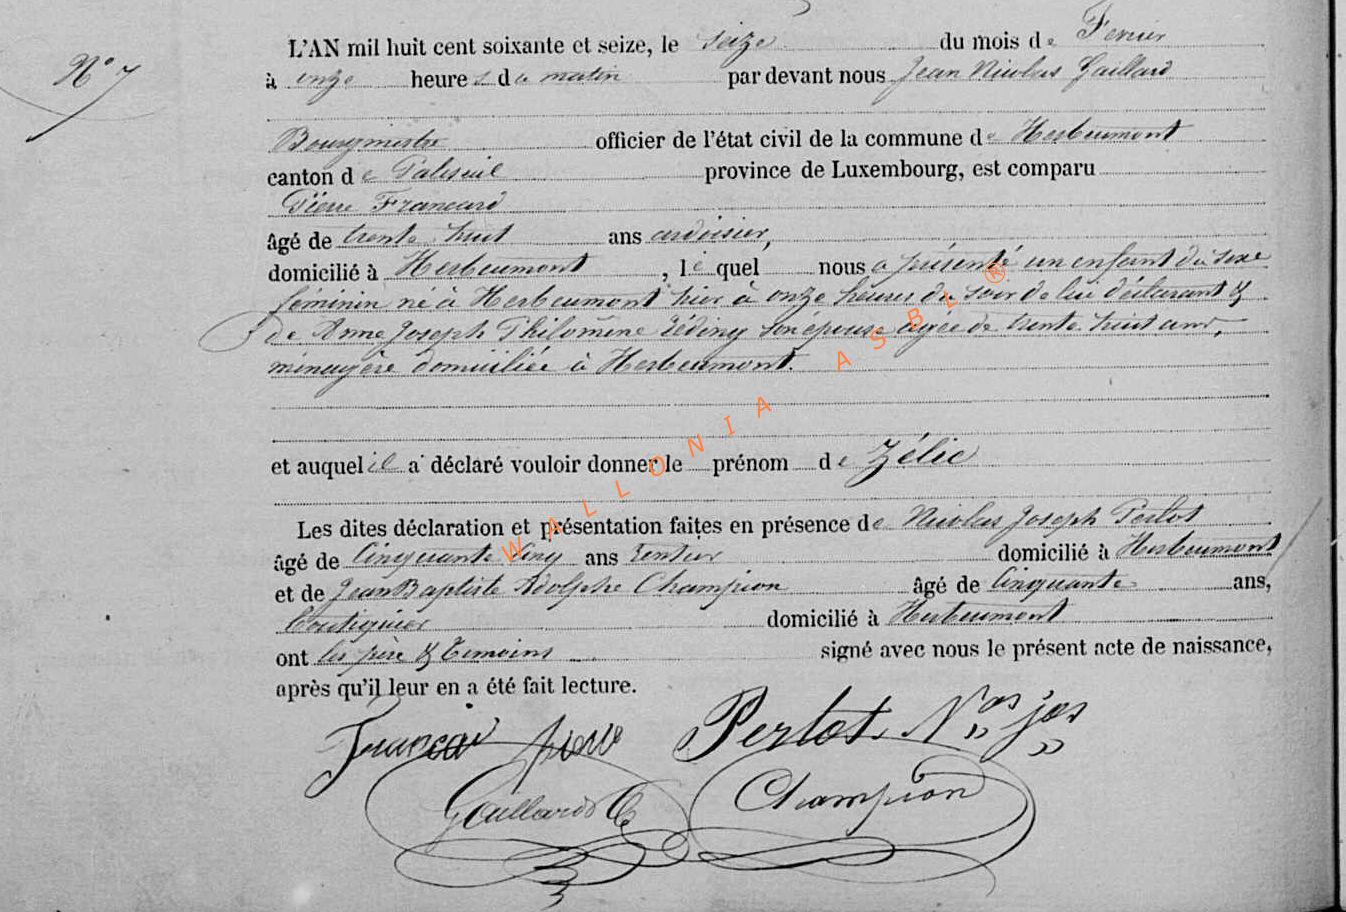 L'AN mil huit cent soixante et seize, le seize du mois de Fevrier
N° 7
à onze heures du matin par devant nous Jean Nicolas Gaillard
Bourgmestre officier de l'état civil de la commune de Herbeumont
canton de Paliseul province de Luxembourg, est comparu
Pierre Francard
âgé de trente huit ans ardoisier,
domicilié à Herbeumont, lequel nous a présenté un enfant du sexe
féminin né à Herbeumont hier à onze heures du soir de lui déclarant &
de Anne Joseph Philomène Zédiny son épouse agée de trente huit ans,
ménagère domiciliée à Herbeumont.
et auquel il a déclaré vouloir donner le prénom de Zélie
Les dites déclaration et présentation faites en présence de Nicolas Joseph Perlot
âgé de Cinquante Cinq ans rentier domicilié à Herbeumont
et de Jean Baptiste Adolphe Champion âgé de Cinquante ans,
Boutiquier domicilié à Herbeumont
ont les père & témoins signé avec nous le présent acte de naissance,
après qu'il leur en a été fait lecture.
Francar pierre Perlot Nas jos
Gaillard Champion
WALLONIA ASBL ®